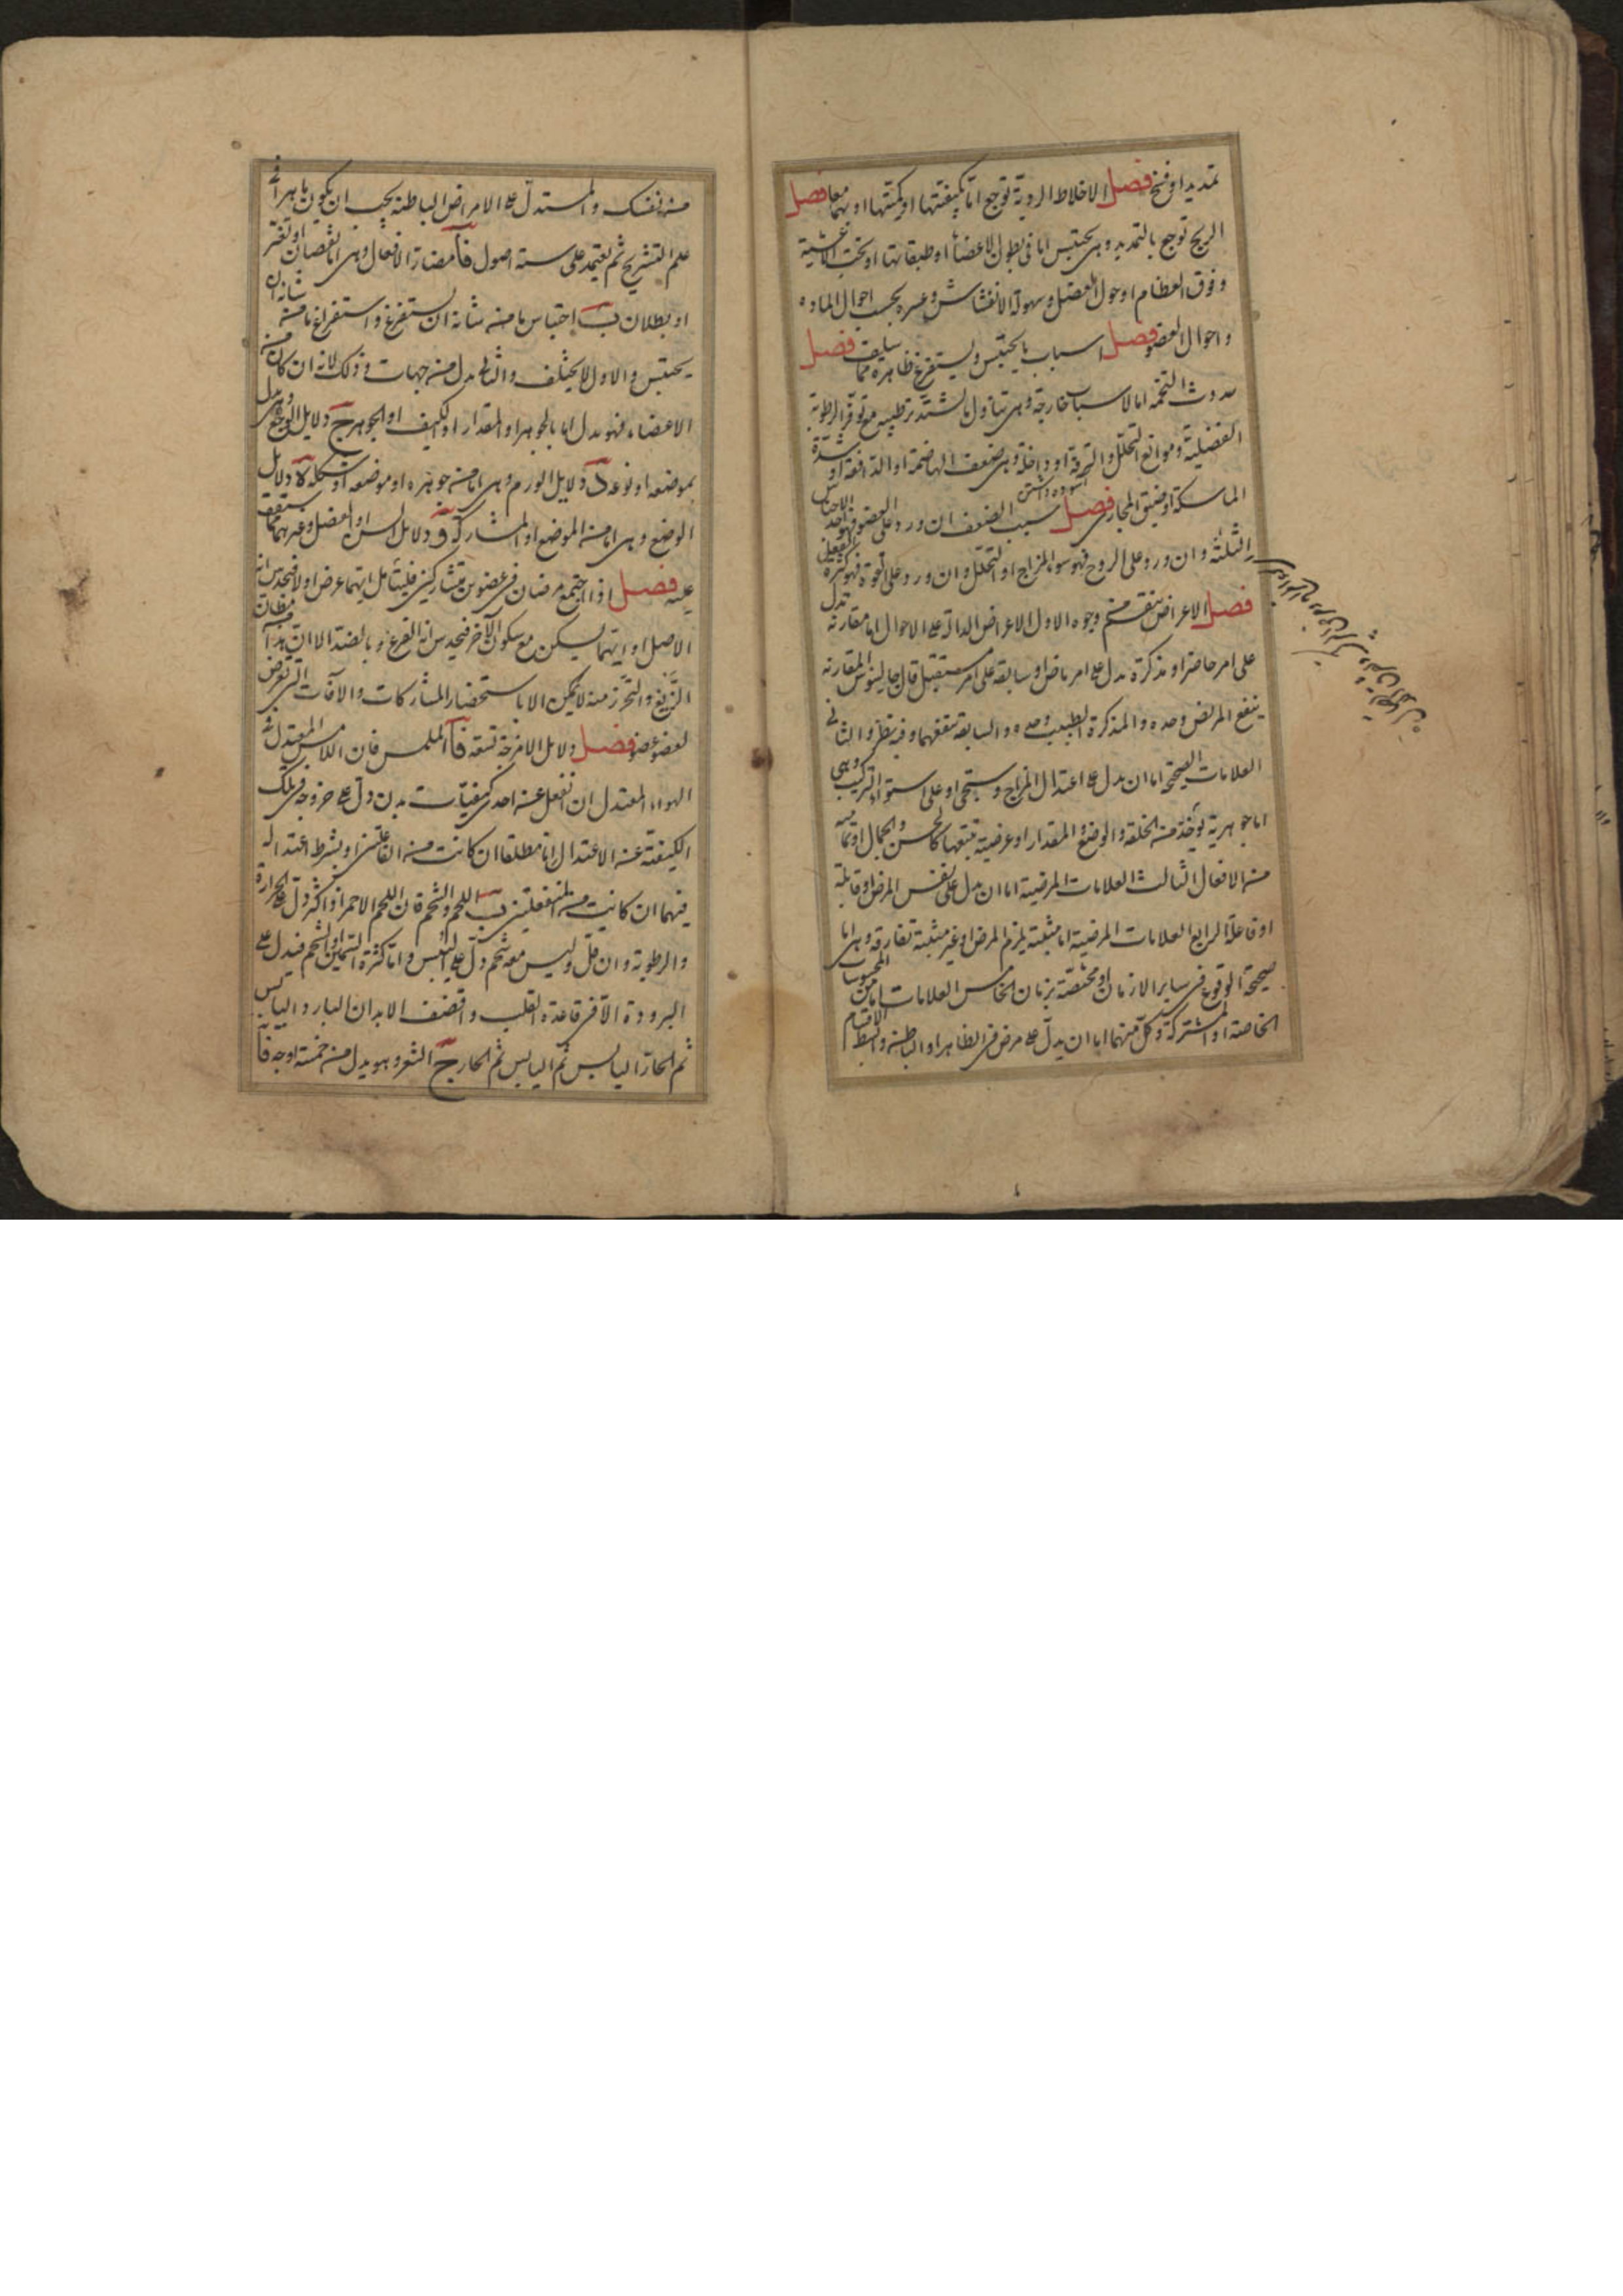 تمديد او فسخ فصل الاخلاط الردية توجع اما بكيفيتها او كميتها او بهما معا فصل
الريح توجع بالتمديد وهى يحتبس اما فى بطون الاعضا او طبقاتها او تحت الاغشية
وفوق العظام او حول العضل وسهولة الانفشاش وعسره بحسب احوال المادة
واحوال العضو فصل اسباب ما يحتبس ويستفرغ ظاهرة مما سلف فصل
حدوث التخمه اما لاسباب خارجة وهى تناول ما يشتد ترطيبه مع توفر الرطوبة
الفضلية وموانع التحلل والتحرقة او داخلة وهى ضعف الهاضمة او الدافعة او شدة
الماسكة او ضيق المجارى فصل سبب الضعف ان ورد على العضو فهو احد الاجناس
الثلثة وان ورد على الروح فهو سوء المزاج او التحلل وان ورد على القوة فهو كثرة الفعل
فصل الاعراض تنقسم وجوه الاول الاعراض الدالة على الاحوال اما مقارنة تدل
على امر حاضر او مذكرة تدل على امر ماض او سابقة على امر مستقبل قال جالينوس المقارنة
ينفع المريض وحده والمذكرة الطبيب وحده والسابقة تنفعهما وفيه نظر والثانى
العلامات الصحية اما ان يدل على اعتدال المزاج وستجى او على استواء التركيب وهى
اما جوهرية توخذ من الخلقة والوضع والمقدار او عرضية تتبعها كالحسن والجمال او تمامية
من الافعال الثالث العلامات المرضية اما ان يدل على نفس المرض او قابلة
او فاعلة الرابع العلامات المرضية اما مثبتة يلزم المرض او غير مثبتة تفارقه وهى اما
صحيحة الوقوع فى ساير الازمان او مختصة بزمان الخامس العلامات اما من المحسوسات
الخاصة او المشتركة وكل منهما اما ان يدل على مرض فى الظاهر او الباطنه وابسط الاقسام
من نفسك والمستدل على الامراض الباطنه يجب ان يكون ماهرا فى
علم التشريح ثم يعتمد على ستة اصول فآ مضار الافعال وهى اما نقصان او تغير
او بطلان ب احتباس ما من شانه ان يستفرغ واستفراغ ما من شانه ان
يحتبس والاول لا يختلف والثانى يدل من جهات وذلك لانه ان كان من
الاعضاء فهو يدل اما بالجوهر او المقدار او الكيف او الجوهر ج دلايل الوجع وهى تدل
بموضعه او نوعه د دلايل الورم وهى اما من جوهره او موضعه او شكله ه دلايل
الوضع وهى اما من الموضع او المشاركة و دلايل السن او الفصل وغيرهما مما ستقف
عليه فصل اذا اجتمع مرضان فى عضوين متشاركين فليتامل ايتهما عرض اولا فيحدس انه
الاصل او ايتهما يسكن مع سكون الآخر فيحدس انه الفرع وبالضد الا ان هذا مظان
الزيغ والتحرز منه لا يمكن الا باستحضار المشاركات والآفات التى تعرض
لعضو عضو فصل دلايل الامزجة تسعة فآ الملمس فان اللامس المعتدل فى
الهواء المعتدل ان انفعل عنه احدى كيفيات بدن دل على خروجه فى تلك
الكيفية عن الاعتدال اما مطلقا ان كانت من الفاعلتين او بشرط اعتداله
فيهما ان كانت من المنفعلتين ب اللحم والشحم فان اللحم الاحمر اذا كثر دل على الحرارة
والرطوبة وان قل وليس معه شحم دل على اليبس واما كثرة السمين والشحم فتدل على
البرودة الا فى قاعدة القلب واقضف الابدان البارد اليابس
ثم الحار اليابس ثم اليابس ثم الحار ج الشعر وهو يدل من خمسة اوجه فآ